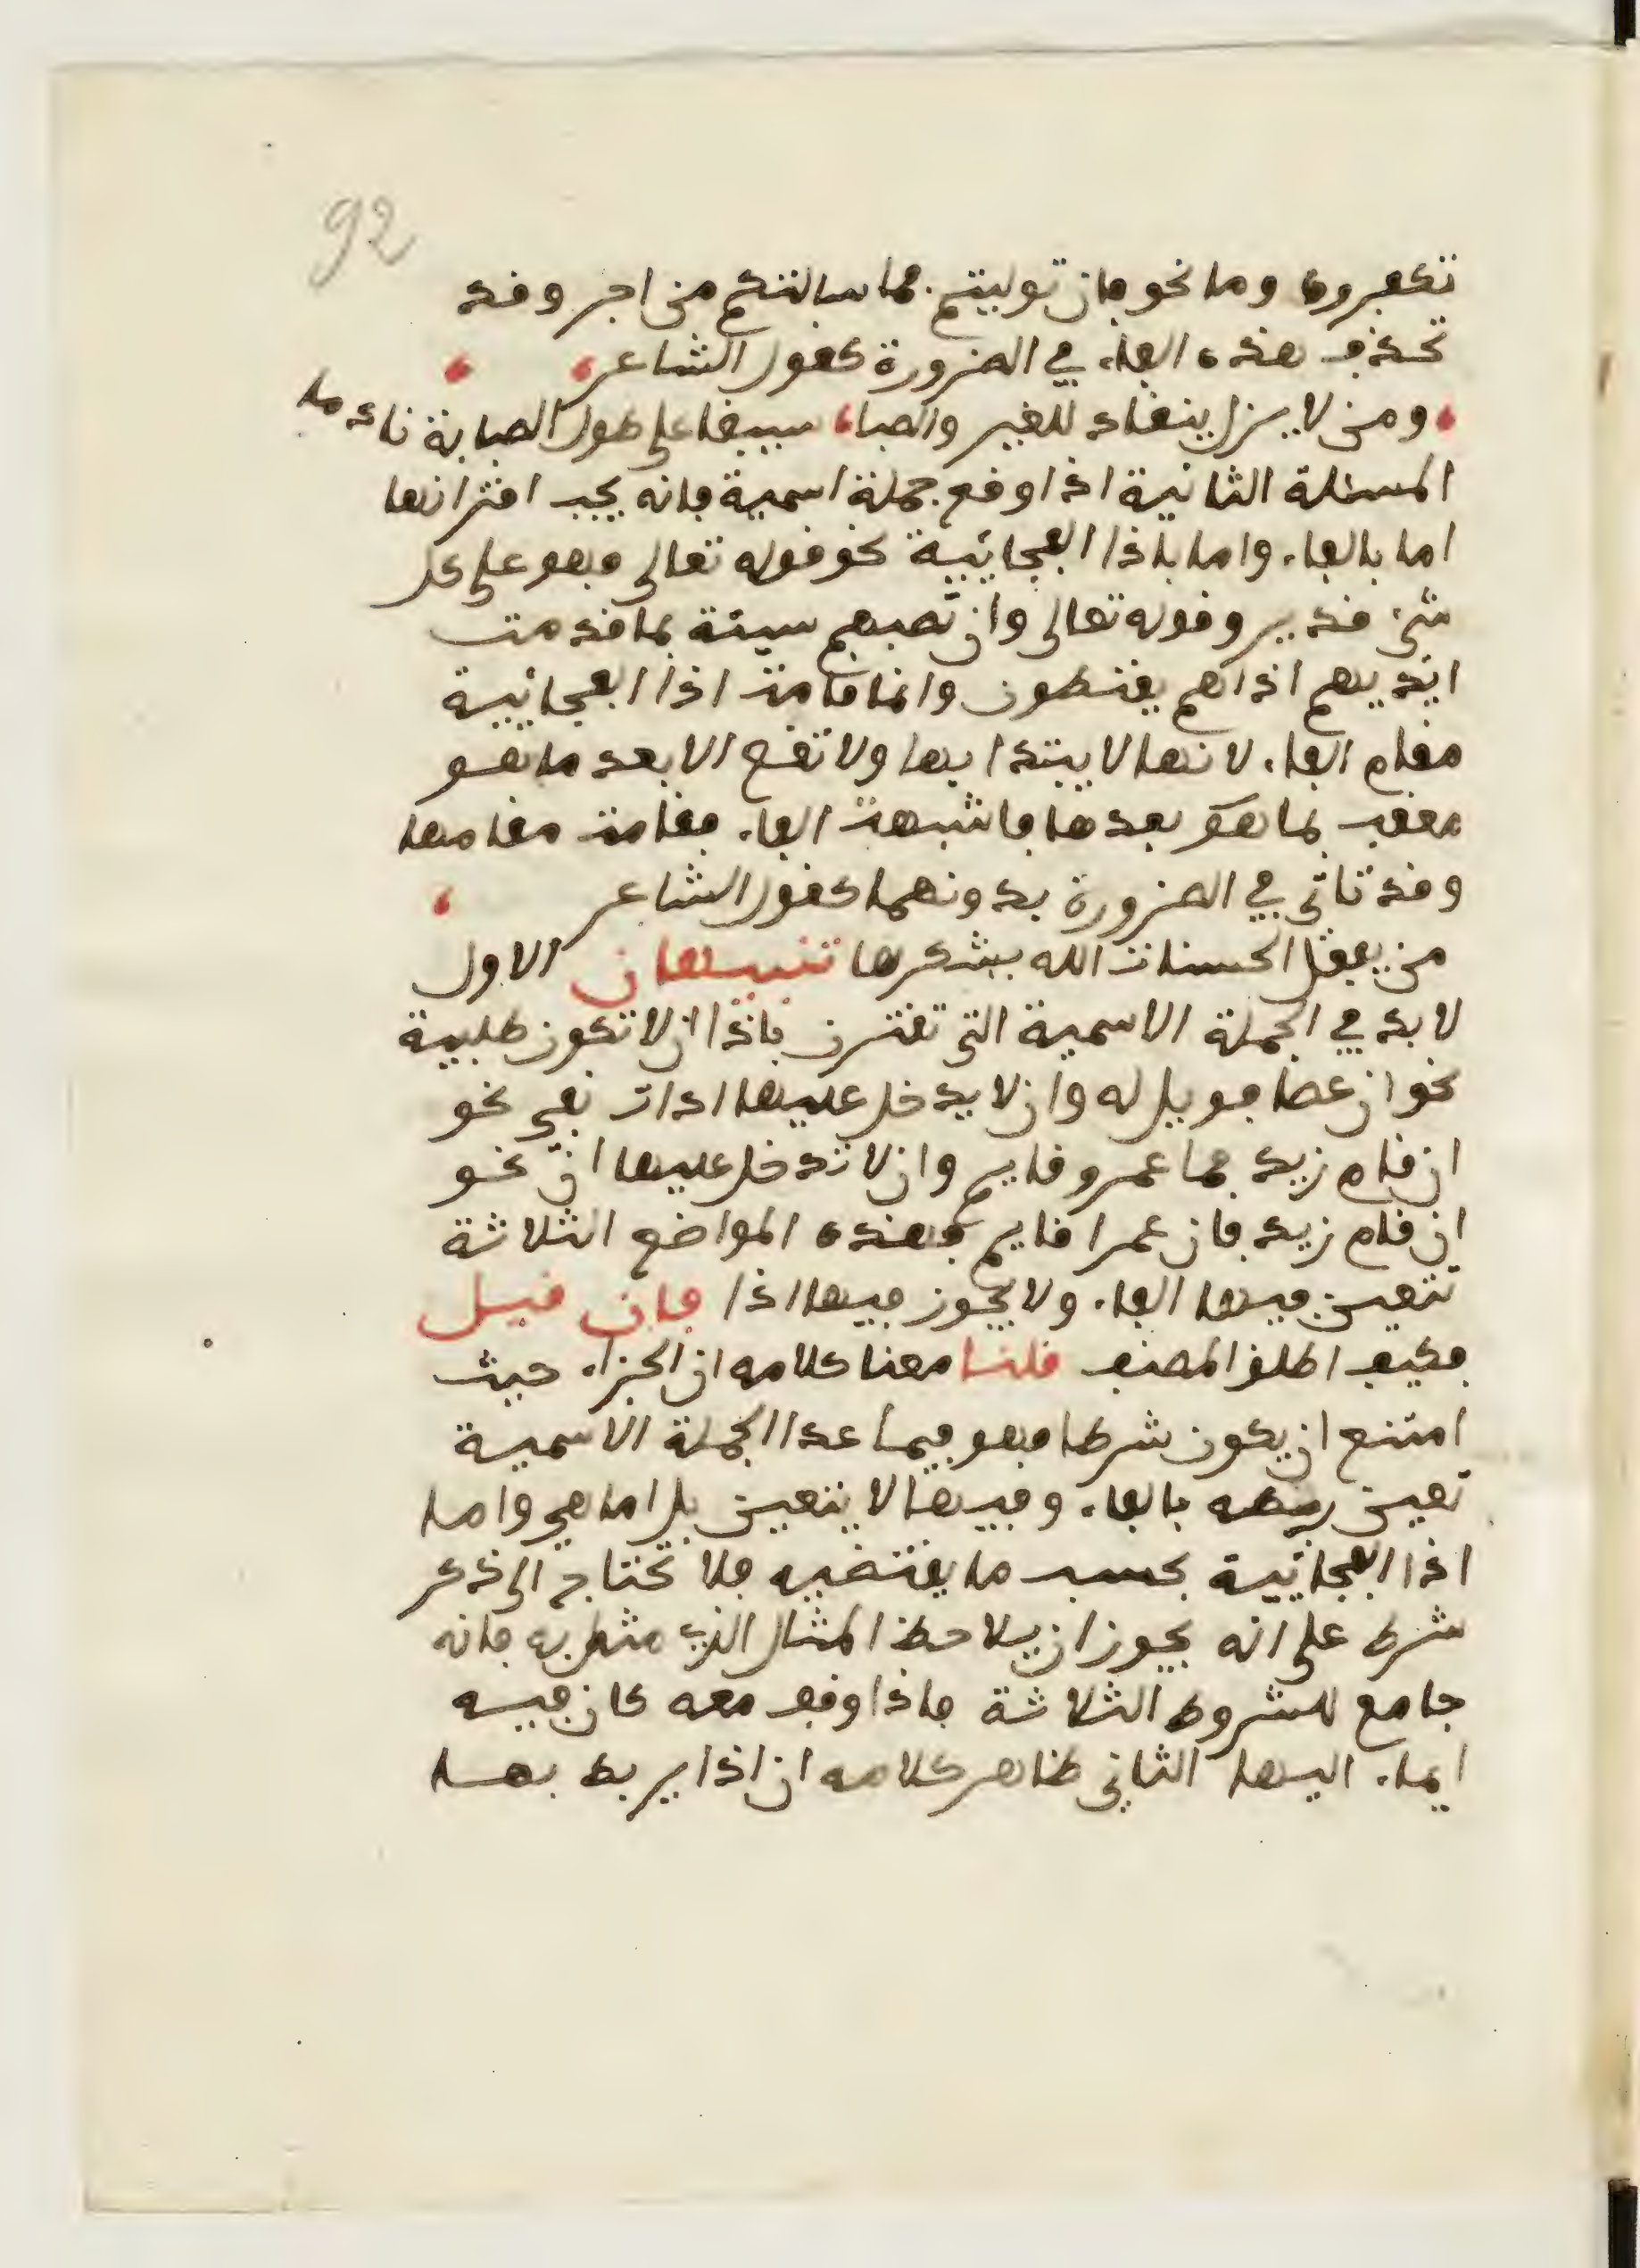 92
تكفروه وما نحو فان توليتم فما سالتكم من اجر وقد
تحذف هذه الفاء في الضرورة كقول الشاعر
ومن لا يزل ينقاد للغي والصبا، سيلفا على طول الصبابة نادما
المسئلة الثانية اذا وقع جملة اسمية فانه يجب اقترانها
اما بالفاء واما باذا الفجائيية نحو قوله تعالى فهو على كل
شيء قدير وقوله تعالى وان تصبهم سيئة بما قدمت
ايديهم اذا هم يقنطون وانما قامت اذا الفجائيية
مقام الفاء لانها لا يبتدا بها ولا تقع الا بعد ما هو
معقب بما هو بعدها فاشبهت الفاء فقامت مقامها
وقد تاتي في الضرورة بدونهما كقول الشاعر
من يفعل الحسنات الله يشكرها تنبيهان الاول
لا بد في الجملة الاسمية التي تقترن باذا ان لا تكون طلبية
نحو ان عصا فويل له وان لا يدخل عليها ادات نفي نحو
ان قام زيد فما عمرو قايم وان لا تدخل عليها انّ نحو
ان قام زيد فان عمرا قايم فهذه المواضع الثلاثة
تتعين فيها الفاء ولا يجوز فيها اذا فان قيل
فكيف اطلق المصنف قلنا معنا كلامه ان الجزاء حيث
امتنع ان يكون شرطا فهو فيما عدا الجملة الاسمية
تعين ربطه بالفاء وفيها لا يتعين بل اما هي واما
اذا الفجائيية بحسب ما يقتضيه فلا تحتاج الى ذكر
شرط على انه يجوز ان يلاحظ المثال الذي مثل به فانه
جامع للشروط الثلاثة فاذا وقف معه كان فيه
ايماء اليها الثاني ظاهر كلامه ان اذا يربط بها